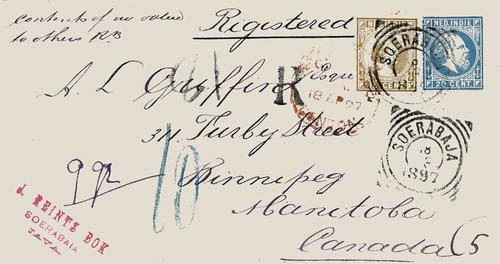 contents of no value
to others RB
Registered
NED. INDIE
20 CENT.
SOERABAJA
A L Griffin Esqre
R
18 AP 97
LONDON
311 Furby Street
SOERABAJA
18
3
1897
992
10
Winnipeg
Manitoba
Canada
J. REINTS BOK
SOERABAIA
JAVA